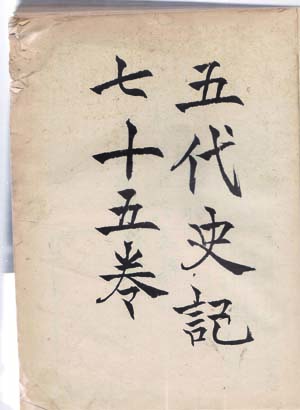 五代史記
七十五卷